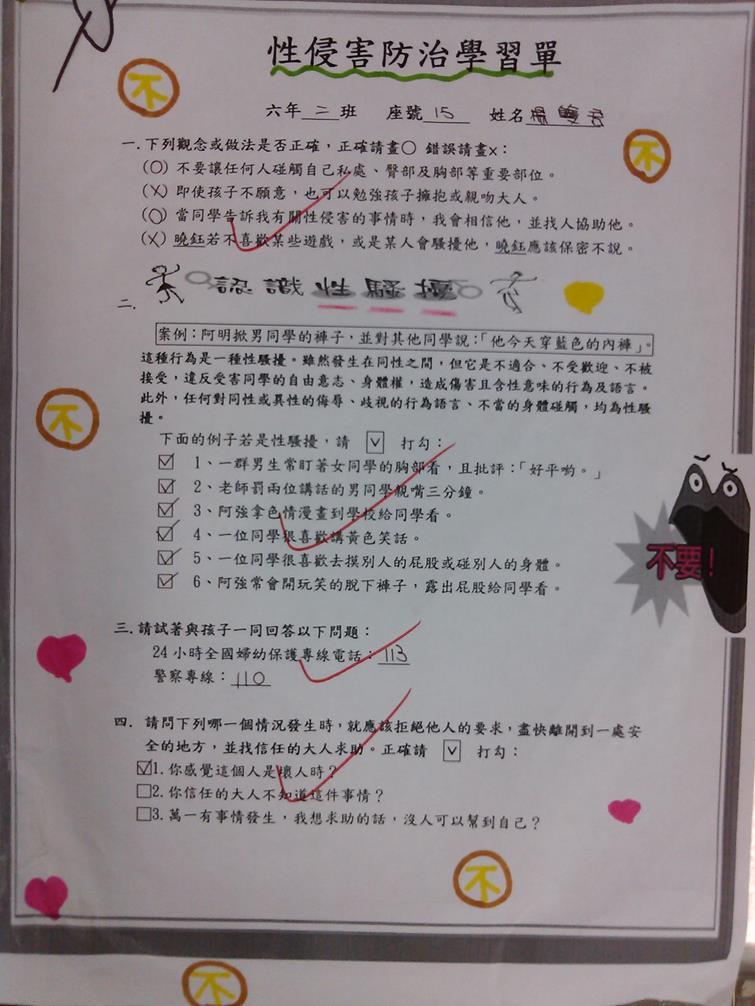 性侵害防治學習單
不
六年二班 座號15 姓名
不
一.下列觀念或做法是否正確，正確請畫○ 錯誤請畫x：
(O) 不要讓任何人碰觸自己私處、臀部及胸部等重要部位。
(X) 即使孩子不願意，也可以勉強孩子擁抱或親吻大人。
(O) 當同學告訴我有關性侵害的事情時，我會相信他，並找人協助他。
(X) 曉鈺若不喜歡某些遊戲，或是某人會騷擾他，曉鈺應該保密不說。
二. 認識性騷擾
案例：阿明掀男同學的褲子，並對其他同學說：「他今天穿藍色的內褲」。
這種行為是一種性騷擾。雖然發生在同性之間，但它是不適合、不受歡迎、不被
接受，違反受害同學的自由意志、身體權，造成傷害且含性意味的行為及語言。
此外，任何對同性或異性的侮辱、歧視的行為語言、不當的身體碰觸，均為性騷
擾。
不
下面的例子若是性騷擾，請 ☑ 打勾：
☑ 1、一群男生常盯著女同學的胸部看，且批評：「好平喲。」
☑ 2、老師罰兩位講話的男同學親嘴三分鐘。
☑ 3、阿強拿色情漫畫到學校給同學看。
☑ 4、一位同學很喜歡講黃色笑話。
☑ 5、一位同學很喜歡去摸別人的屁股或碰別人的身體。
☑ 6、阿強常會開玩笑的脫下褲子，露出屁股給同學看。
不要!
三.請試著與孩子一同回答以下問題：
24小時全國婦幼保護專線電話：113
警察專線：110
四. 請問下列哪一個情況發生時，就應該拒絕他人的要求，盡快離開到一處安
全的地方，並找信任的大人求助。正確請 ☑ 打勾：
☑1.你感覺這個人是壞人時？
□2.你信任的大人不知道這件事情？
□3.萬一有事情發生，我想求助的話，沒人可以幫到自己？
不
不